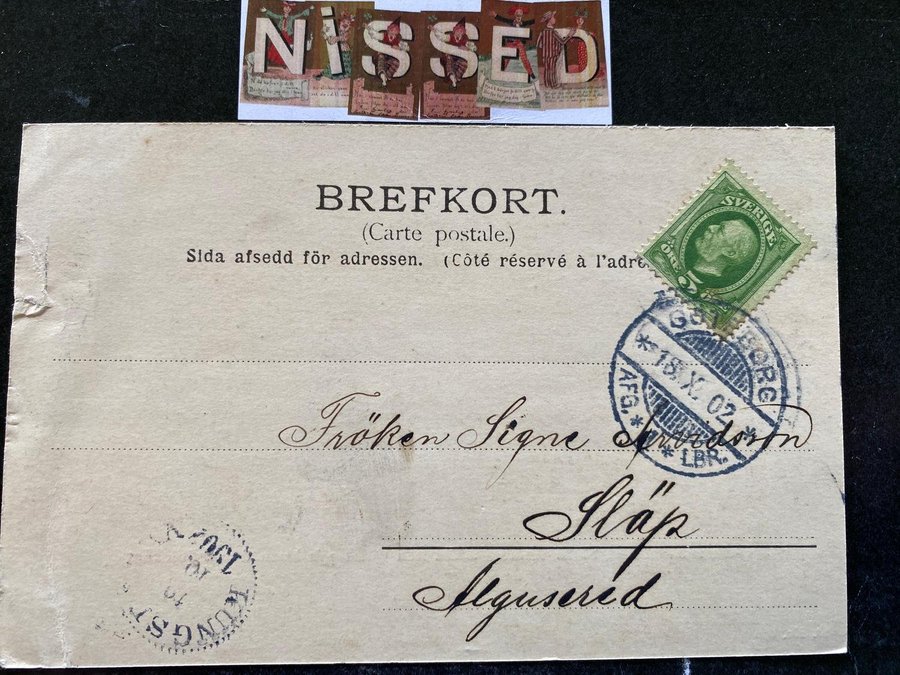 NiSSED
BREFKORT.
(Carte postale.)
Sida afsedd för adressen. (Côté réservé à l'adre
SVERIGE
5 ÖRE
GÖTEBORG
18. X. 02
AFG. LBR.
Fröken Signe Arvidsson
Släp
Algusered
KUNGSB
1902